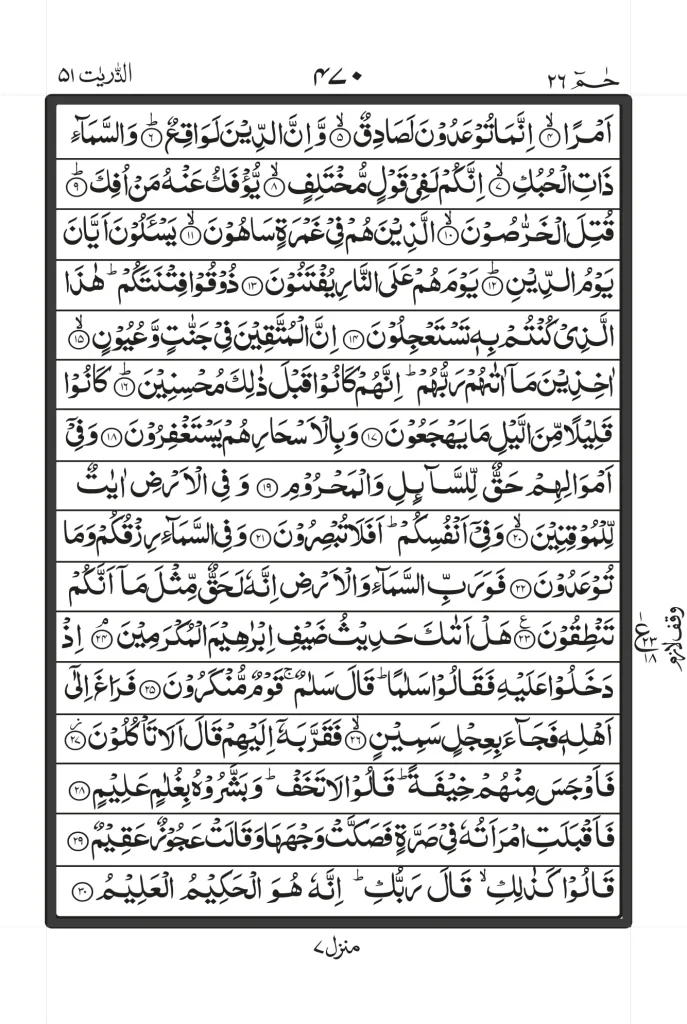 حٰمٓ ٢٦
٤٧٠
الذّٰرِیٰت ٥١
اَمْرًا ۙ﴿٤﴾ اِنَّمَا تُوْعَدُوْنَ لَصَادِقٌ ۙ﴿٥﴾ وَّ اِنَّ الدِّیْنَ لَوَاقِعٌ ؕ﴿٦﴾ وَ السَّمَآءِ
ذَاتِ الْحُبُكِ ۙ﴿٧﴾ اِنَّكُمْ لَفِیْ قَوْلٍ مُّخْتَلِفٍ ۙ﴿٨﴾ یُّؤْفَكُ عَنْهُ مَنْ اُفِكَ ؕ﴿٩﴾
قُتِلَ الْخَرّٰصُوْنَ ۙ﴿١٠﴾ الَّذِیْنَ هُمْ فِیْ غَمْرَةٍ سَاهُوْنَ ۙ﴿١١﴾ یَسْـَٔلُوْنَ اَیَّانَ
یَوْمُ الدِّیْنِ ؕ﴿١٢﴾ یَوْمَ هُمْ عَلَی النَّارِ یُفْتَنُوْنَ ﴿١٣﴾ ذُوْقُوْا فِتْنَتَكُمْ ؕ هٰذَا
الَّذِیْ كُنْتُمْ بِهٖ تَسْتَعْجِلُوْنَ ﴿١٤﴾ اِنَّ الْمُتَّقِیْنَ فِیْ جَنّٰتٍ وَّ عُیُوْنٍ ۙ﴿١٥﴾
اٰخِذِیْنَ مَاۤ اٰتٰىهُمْ رَبُّهُمْ ؕ اِنَّهُمْ كَانُوْا قَبْلَ ذٰلِكَ مُحْسِنِیْنَ ؕ﴿١٦﴾ كَانُوْا
قَلِیْلًا مِّنَ الَّیْلِ مَا یَهْجَعُوْنَ ﴿١٧﴾ وَ بِالْاَسْحَارِ هُمْ یَسْتَغْفِرُوْنَ ﴿١٨﴾ وَ فِیْۤ
اَمْوَالِهِمْ حَقٌّ لِّلسَّآىِٕلِ وَ الْمَحْرُوْمِ ﴿١٩﴾ وَ فِی الْاَرْضِ اٰیٰتٌ
لِّلْمُوْقِنِیْنَ ۙ﴿٢٠﴾ وَ فِیْۤ اَنْفُسِكُمْ ؕ اَفَلَا تُبْصِرُوْنَ ﴿٢١﴾ وَ فِی السَّمَآءِ رِزْقُكُمْ وَ مَا
تُوْعَدُوْنَ ﴿٢٢﴾ فَوَرَبِّ السَّمَآءِ وَ الْاَرْضِ اِنَّهٗ لَحَقٌّ مِّثْلَ مَاۤ اَنَّكُمْ
تَنْطِقُوْنَ ۠﴿٢٣﴾ هَلْ اَتٰىكَ حَدِیْثُ ضَیْفِ اِبْرٰهِیْمَ الْمُكْرَمِیْنَ ۘ﴿٢٤﴾ اِذْ
ع ٢٣ ١٨ وقف لازم
دَخَلُوْا عَلَیْهِ فَقَالُوْا سَلٰمًا ؕ قَالَ سَلٰمٌ ۚ قَوْمٌ مُّنْكَرُوْنَ ﴿٢٥﴾ فَرَاغَ اِلٰۤی
اَهْلِهٖ فَجَآءَ بِعِجْلٍ سَمِیْنٍ ۙ﴿٢٦﴾ فَقَرَّبَهٗۤ اِلَیْهِمْ قَالَ اَلَا تَاْكُلُوْنَ ؗ﴿٢٧﴾
فَاَوْجَسَ مِنْهُمْ خِیْفَةً ؕ قَالُوْا لَا تَخَفْ ؕ وَ بَشَّرُوْهُ بِغُلٰمٍ عَلِیْمٍ ﴿٢٨﴾
فَاَقْبَلَتِ امْرَاَتُهٗ فِیْ صَرَّةٍ فَصَكَّتْ وَجْهَهَا وَ قَالَتْ عَجُوْزٌ عَقِیْمٌ ﴿٢٩﴾
قَالُوْا كَذٰلِكِ ۙ قَالَ رَبُّكِ ؕ اِنَّهٗ هُوَ الْحَكِیْمُ الْعَلِیْمُ ﴿٣٠﴾
منزل ٧